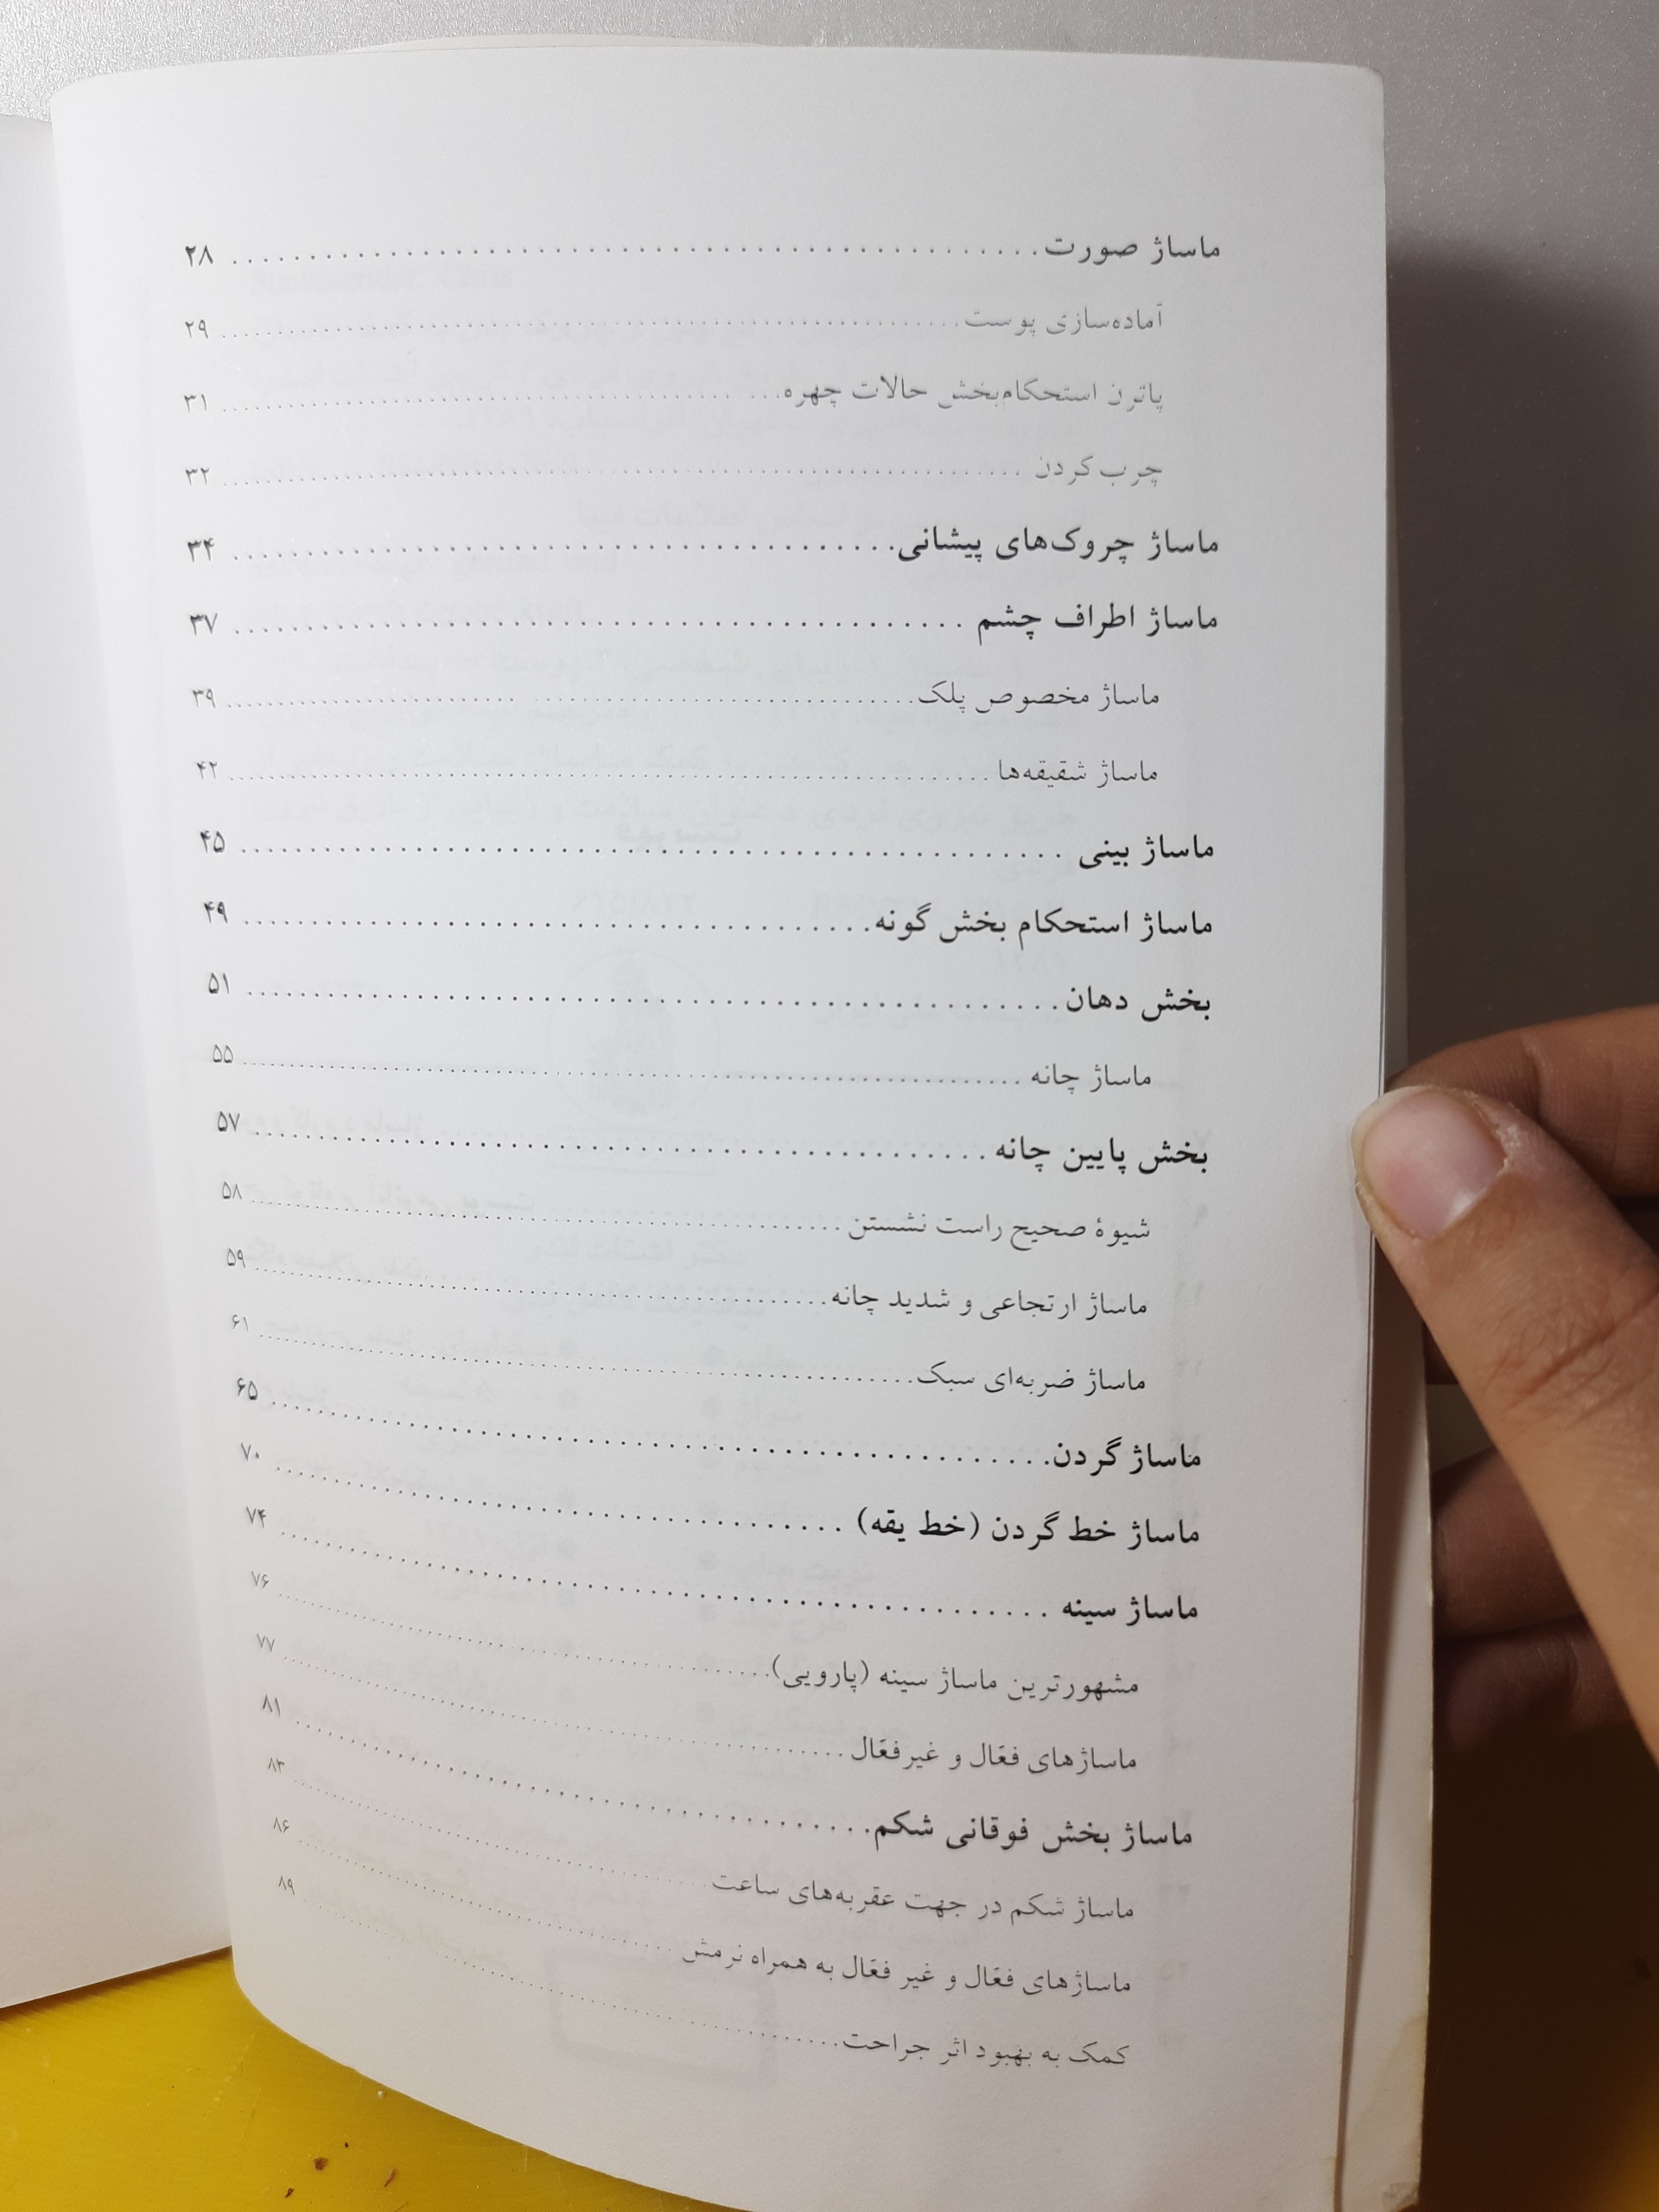 ماساژ صورت ........................................ ۲۸
آماده‌سازی پوست ........................................ ۲۹
پاترن استحکام‌بخش حالات چهره ........................................ ۳۱
چرب کردن ........................................ ۳۲
ماساژ چروک‌های پیشانی ........................................ ۳۴
ماساژ اطراف چشم ........................................ ۳۷
ماساژ مخصوص پلک ........................................ ۳۹
ماساژ شقیقه‌ها ........................................ ۴۲
ماساژ بینی ........................................ ۴۵
ماساژ استحکام بخش گونه ........................................ ۴۹
بخش دهان ........................................ ۵۱
ماساژ چانه ........................................ ۵۵
بخش پایین چانه ........................................ ۵۷
شیوهٔ صحیح راست نشستن ........................................ ۵۸
ماساژ ارتجاعی و شدید چانه ........................................ ۵۹
ماساژ ضربه‌ای سبک ........................................ ۶۱
ماساژ گردن ........................................ ۶۵
ماساژ خط گردن (خط یقه) ........................................ ۷۰
ماساژ سینه ........................................ ۷۴
مشهورترین ماساژ سینه (پارویی) ........................................ ۷۶
ماساژهای فعّال و غیرفعّال ........................................ ۷۷
ماساژ بخش فوقانی شکم ........................................ ۸۱
ماساژ شکم در جهت عقربه‌های ساعت ........................................ ۸۳
ماساژهای فعّال و غیر فعّال به همراه نرمش ........................................ ۸۶
کمک به بهبود اثر جراحت ........................................ ۸۹